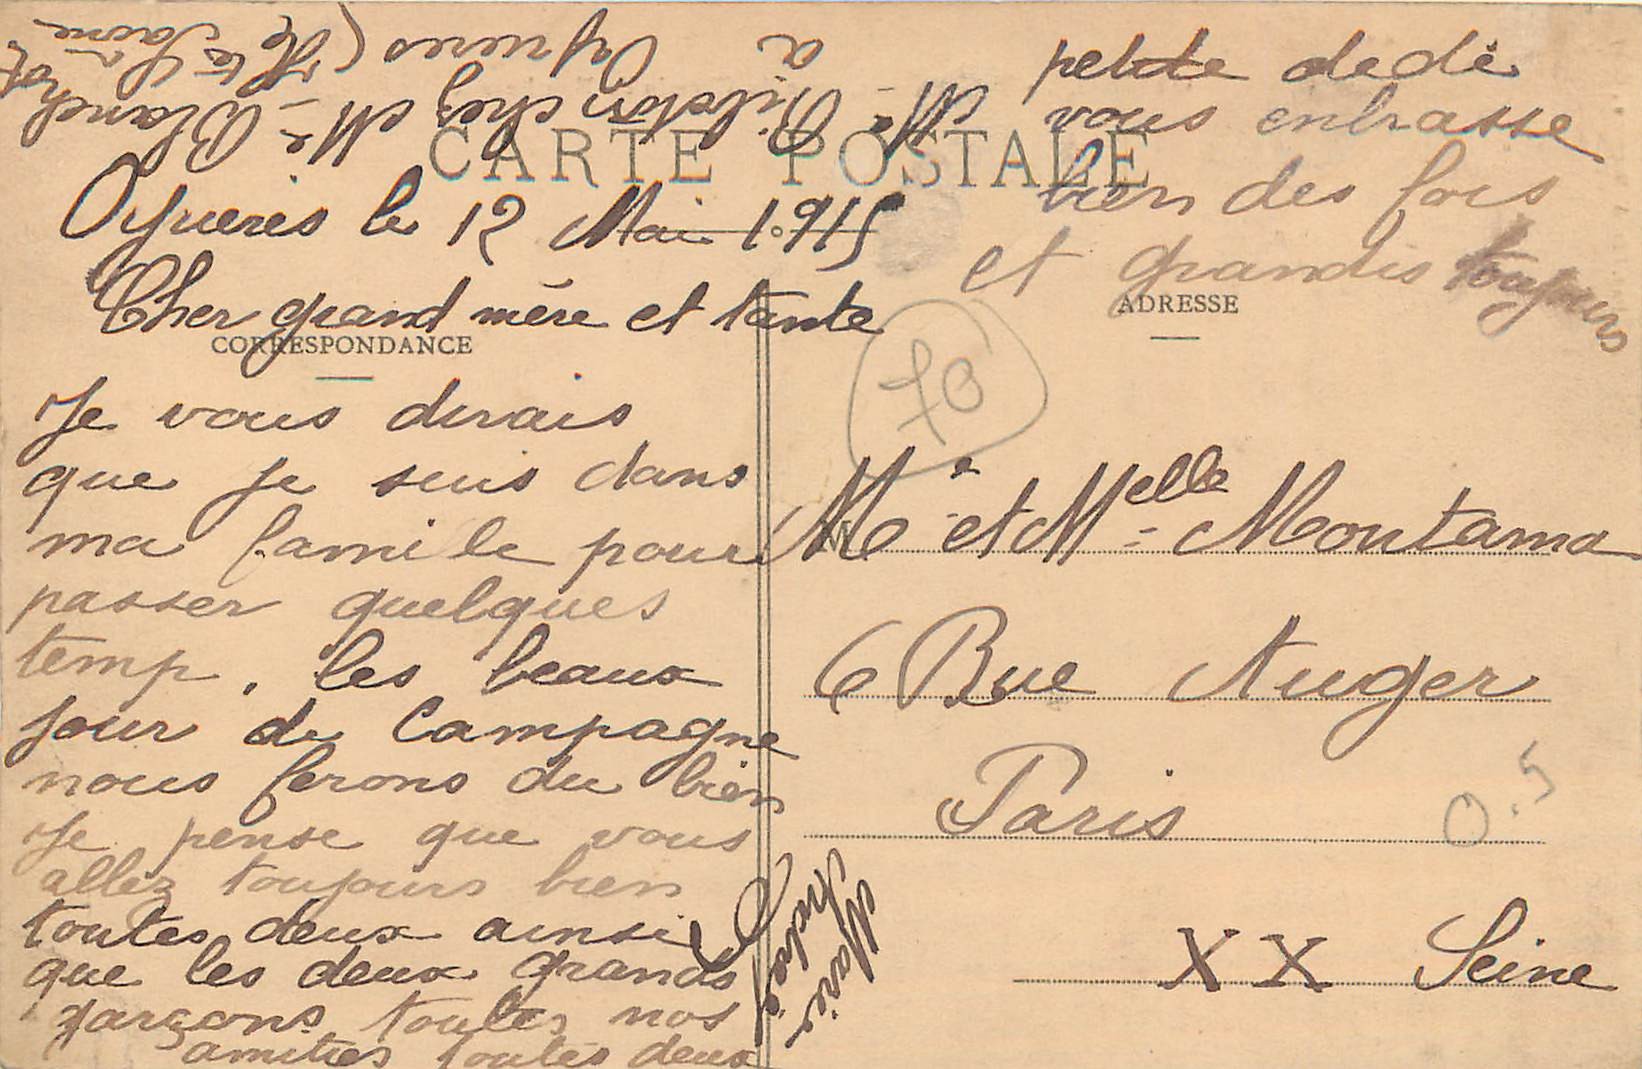 CARTE POSTALE
CORRESPONDANCE
ADRESSE
Oyrieres le 12 Mai 1.915
Cher grand mère et tante
Je vous dirais
que je suis dans
ma famile pour
passer quelques
temp. les beaux
jour de Campagne
nous ferons du bien
Je pense que vous
allez toujours bien
toutes deux ainsi
que les deux grands
garçons toutes nos
amitiés toutes deux
Marie
petite dedé
vous enbrasse
bien des fois
et grandis toujours
Me chez Me Blanchot
à Oyrieres (Hte Saone
70
Me et Melle Montama
6 Rue Auger
Paris
XX Seine
0.5